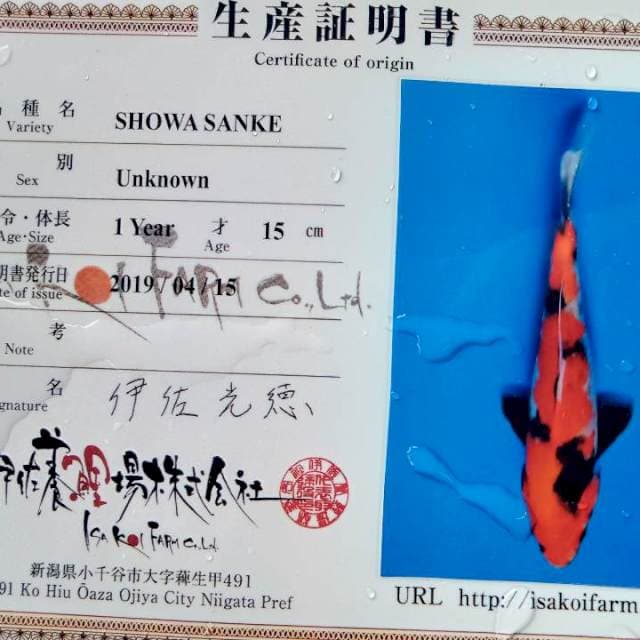 生産証明書
Certificate of origin
種名
Variety
SHOWA SANKE
別
Sex
Unknown
令・体長
Age・Size
1 Year
才
Age
15 cm
明書発行日
te of issue
2019/04/15
KOI FARM CO., Ltd.
考
Note
名
gnature
伊佐光徳
伊佐養鯉場株式会社
ISA KOI FARM Co., Ltd.
新潟県小千谷市大字薭生甲491
91 Ko Hiu Ōaza Ojiya City Niigata Pref
URL http://isakoifarm